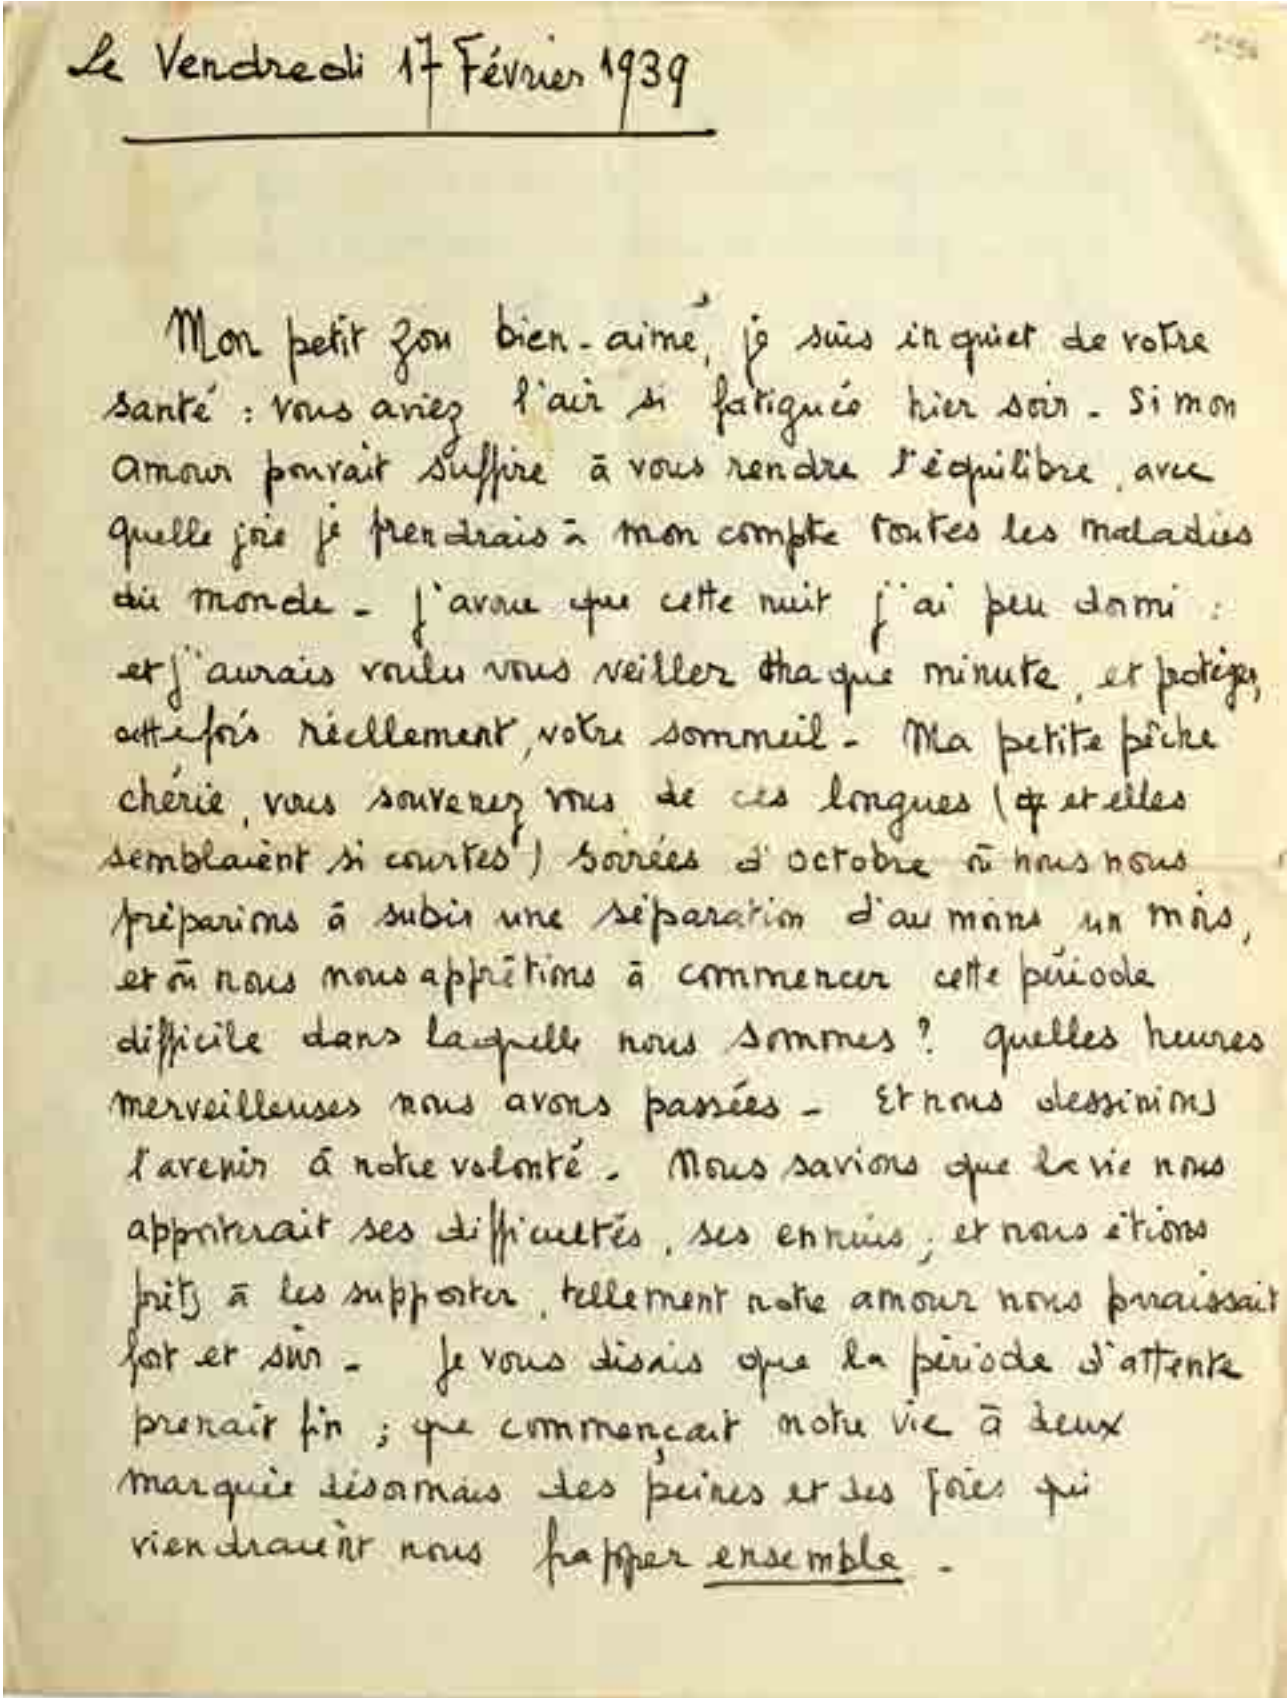 Le Vendredi 17 Février 1939
Mon petit Zou bien-aimé, je suis inquiet de votre
santé : vous aviez l'air si fatiguée hier soir - Si mon
amour pouvait suffire à vous rendre l'équilibre, avec
quelle joie je prendrais à mon compte toutes les maladies
du monde - J'avoue que cette nuit j'ai peu dormi :
et j'aurais voulu vous veiller chaque minute, et protéger,
cette fois réellement, votre sommeil - Ma petite pêche
chérie, vous souvenez vous de ces longues (et elles
semblaient si courtes) soirées d'octobre où nous nous
préparions à subir une séparation d'au moins un mois,
et où nous nous apprêtions à commencer cette période
difficile dans laquelle nous sommes ? Quelles heures
merveilleuses nous avons passées - Et nous dessinions
l'avenir à notre volonté - Nous savions que la vie nous
apporterait ses difficultés, ses ennuis ; et nous étions
prêts à les supporter, tellement notre amour nous paraissait
fort et sûr - Je vous disais que la période d'attente
prenait fin ; que commençait notre vie à deux
marquée désormais des peines et des joies qui
viendraient nous frapper ensemble -